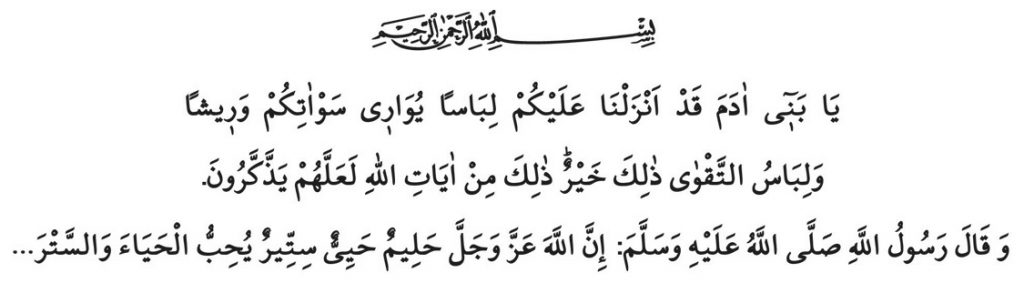 بِسْمِ اللهِ الرَّحْمٰنِ الرَّحِيمِ
يَا بَنٖٓى اٰدَمَ قَدْ اَنْزَلْنَا عَلَيْكُمْ لِبَاسًا يُوَارٖى سَوْاٰتِكُمْ وَرٖيشًا
وَلِبَاسُ التَّقْوٰى ذٰلِكَ خَيْرٌؕ ذٰلِكَ مِنْ اٰيَاتِ اللهِ لَعَلَّهُمْ يَذَّكَّرُونَ.
وَ قَالَ رَسُولُ اللَّهِ صَلَّى اللَّهُ عَلَيْهِ وَسَلَّمَ: إِنَّ اللَّهَ عَزَّ وَجَلَّ حَلِيمٌ حَيِىٌّ سِتِّيرٌ يُحِبُّ الْحَيَاءَ وَالسَّتْرَ...